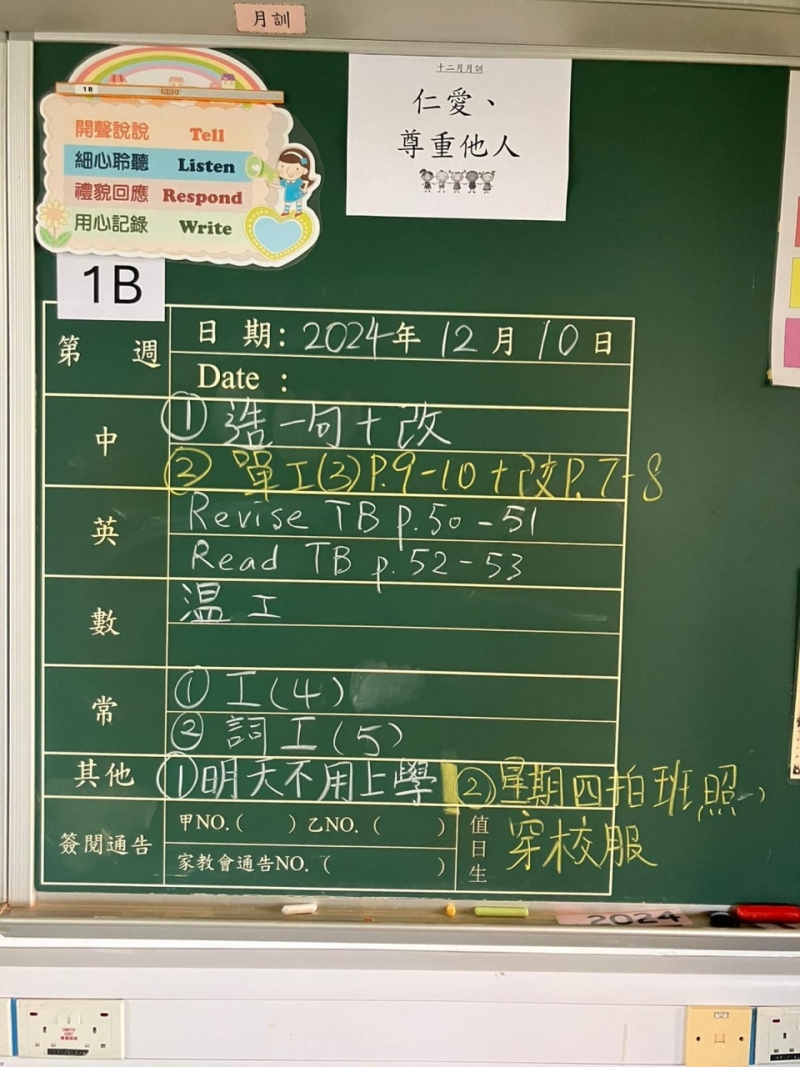 月訓
1B
開聲說說 Tell
細心聆聽 Listen
禮貌回應 Respond
用心記錄 Write
十二月月訓
仁愛、
尊重他人
1B
第 週
日 期: 2024年 12月 10日
Date :
中
① 造一句+改
② 單工(3)P.9-10+改P.7-8
英
Revise TB p.50-51
Read TB p.52-53
數
温工
常
① 工(4)
② 詞工(5)
其他
①明天不用上學 ②星期四拍班照,
穿校服
簽閱通告
甲NO.( ) 乙NO.( )
家教會通告NO.( )
值日生
2024